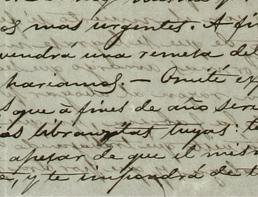 mas urgentes. A fi
vendrá una remesa del
harianos. — Omité ex
que a fines de año ser
libranzas tuyas: te
apesar de que el mism
y te impondrá de l